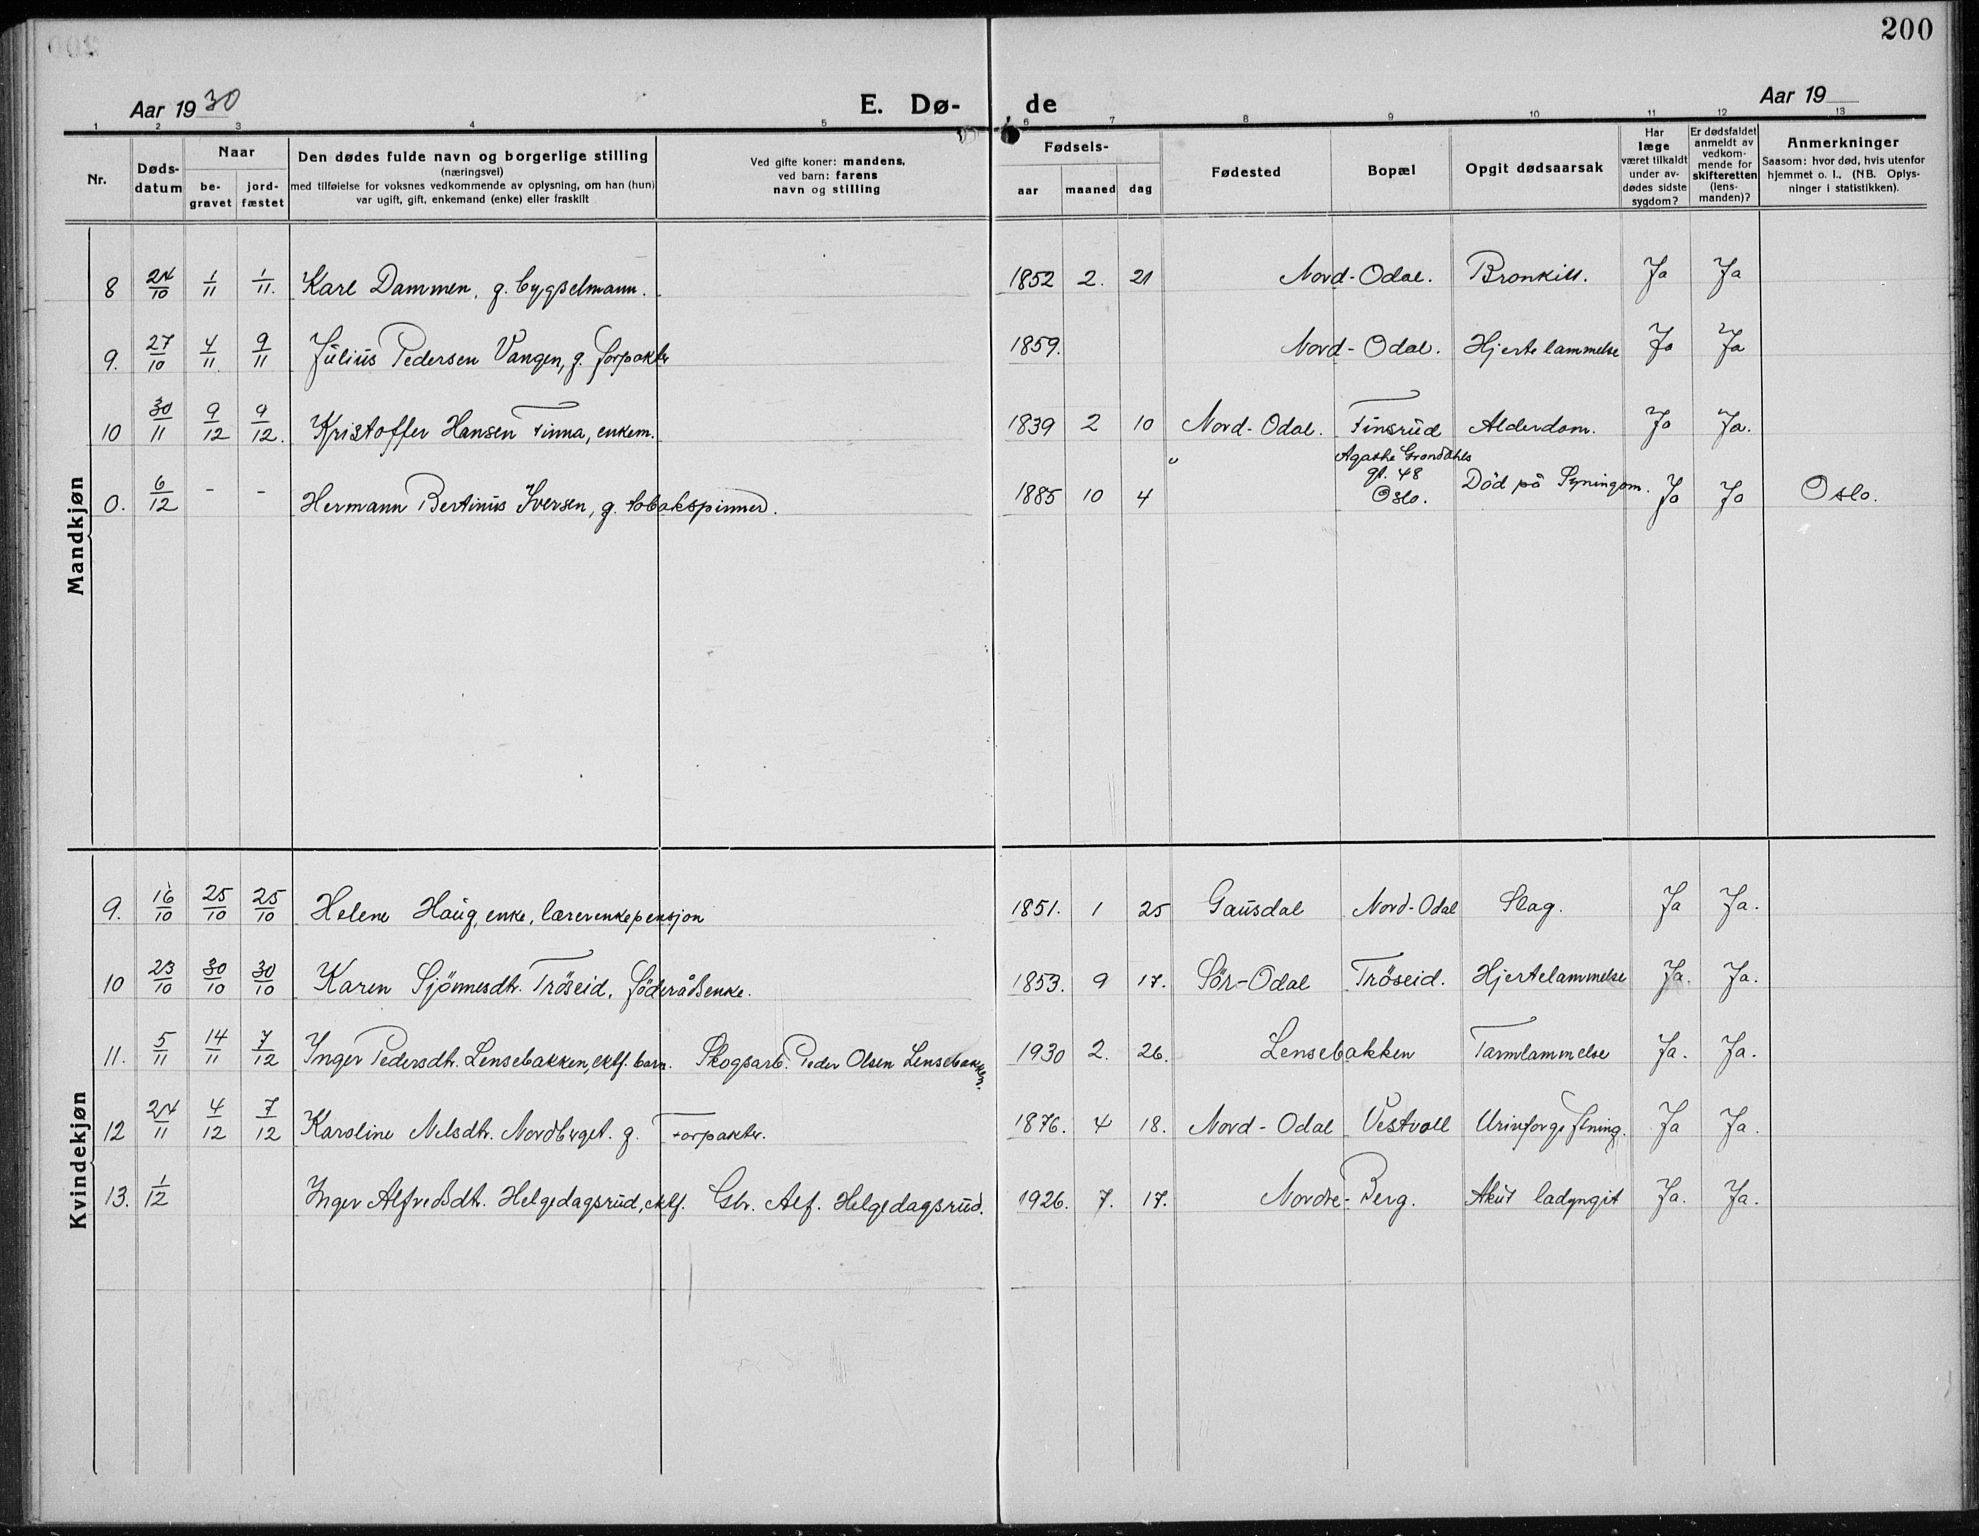 200
Aar 1930 E. Dø- de Aar 19
1 2 3 4 5 6 7 8 9 10 11 12 13
Nr. Døds-datum Naar be-gravet jord-fæstet Den dødes fulde navn og borgerlige stilling (næringsvei) med tilføielse for voksnes vedkommende av oplysning, om han (hun) var ugift, gift, enkemand (enke) eller fraskilt Ved gifte koner: mandens, ved barn: farens navn og stilling Fødsels- aar maaned dag Fødested Bopæl Opgit dødsaarsak Har læge været tilkaldt under av-dødes sidste sygdom? Er dødsfaldet anmeldt av vedkom-mende for skifteretten (lens-manden)? Anmerkninger Saasom: hvor død, hvis utenfor hjemmet o. l., (NB. Oplys-ninger i statistikken).
Mandkjøn
8 24/10 1/11 1/11. Karl Dammen, g. bygselmann. 1852 2. 21 Nord-Odal. Bronkitt. Ja Ja
9. 27/10 4/11 9/11 Julius Pedersen Vangen, g. forpakter 1859. Nord-Odal. Hjertelammelse Ja Ja
10 30/11 9/12 9/12. Kristoffer Hansen Finna, enkem. 1839 2 10 Nord-Odal. Finsrud Alderdom. Ja Ja.
0. 6/12 - - Hermann Bertinus Iversen, g. tobakspinner. 1885 10 4 " Agathe Grøndahls gt. 48 Oslo. Død på Ja Ja Oslo.
Kvindekjøn
9. 16/10 25/10 25/10 Helene Haug, enke, lærerenkepensjon 1851. 1 25 Gausdal Nord-Odal Slag. Ja Ja.
10 23/10 30/10 30/10 Karen Sjønnesdtr. Trøseid, føderådsenke. 1853. 9 17. Sør-Odal Trøseid. Hjertelammelse Ja. Ja.
11. 5/11 14/11 7/12 Inger Pedersdtr. Lensebakken, ektf. barn. Skogsarb. Peder Olsen Lensebakken. 1930 2. 26. Lensebakken Tarmlammelse Ja. Ja.
12 24/11 4/12 7/12 Karoline Nilsdtr. Nordberget. g. Forpakter. 1876. 4 18. Nord-Odal Vestvoll Urinforgiftning. Ja Ja.
13. 1/12 Inger Alfredsdt. Helgedagsrud, ektf. Gbr. Alf. Helgedagsrud. 1926. 7. 17. Nordre-Berg. Akut ladyngit Ja. Ja.